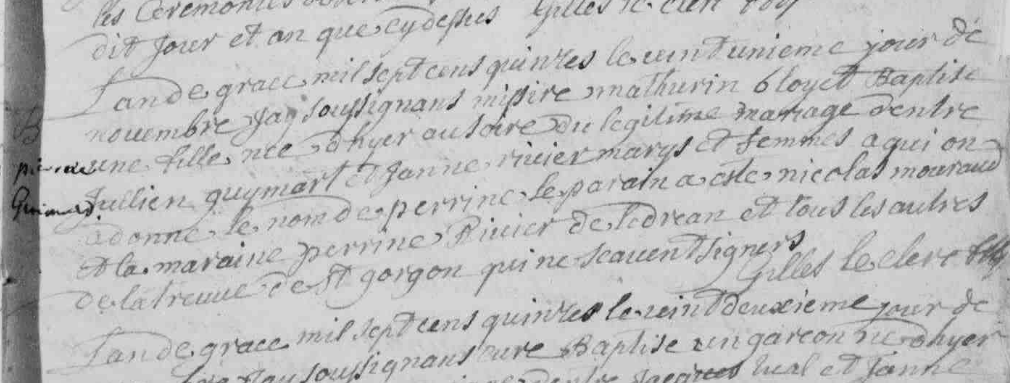 les Ceremonies
dit Jour et an que cydessus Gilles le clerc
Lan de grace mil sept cens quinzes le vint unieme jour de
novembre Jay soussignans missire mathurin bloyet Baptise
une fille nee dhyer au soire du legitime mariage dentre
Jullien guymart et Janne rivier marys et femmes a qui on
a donne le nom de perrine le parain a este nicolas mouraud
et la maraine perrine Rivier de ledrean et tous les autres
de la treuue de St gorgon qui ne scauent signers
Gilles le clerc
Lan de grace mil sept cens quinzes le vint deuxieme jour de
Jay soussignans cure Baptise un garcon ne dhyer
dentre Jacques et Janne